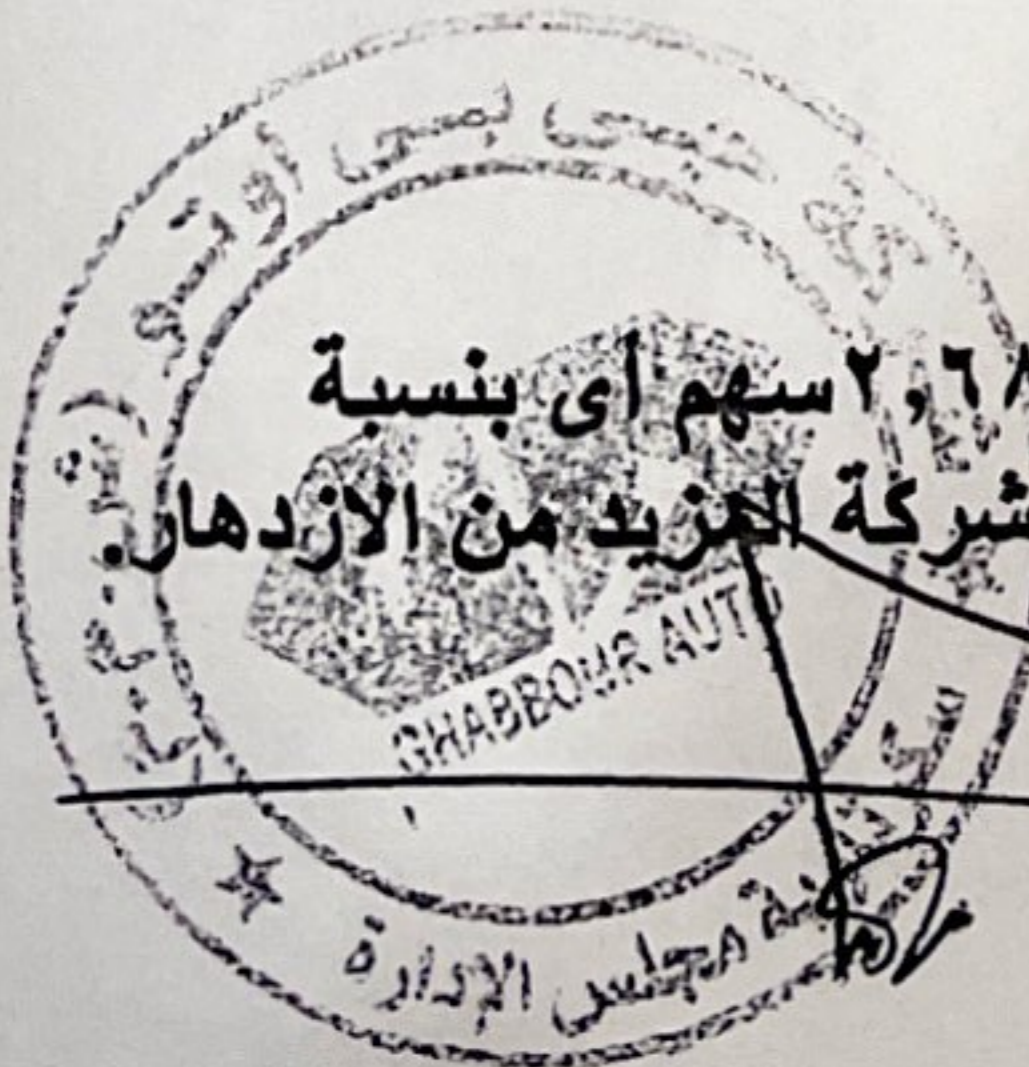 ٢,٦٨ سهم أى بنسبة
شركة المزيد من الازدهار.
شركة جى بى أوتو
GHABBOUR AUTO
مجلس الإدارة